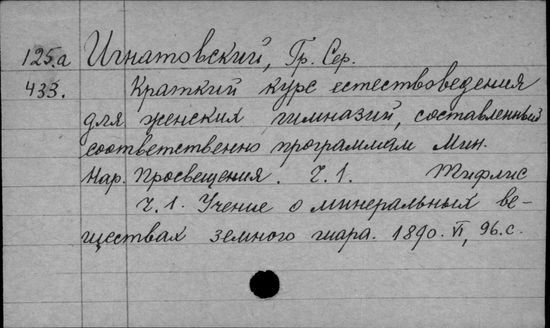 125.а Игнатовский, Гр. Сер.
433. Краткий курс естествоведения
для женских гимназий, составленный
соответственно программам Мин.
Нар. Просвещения. Ч.1. Тифлис
Ч.1. Учение о минеральных ве-
ществах земного шара. 1890. VI, 96.с.